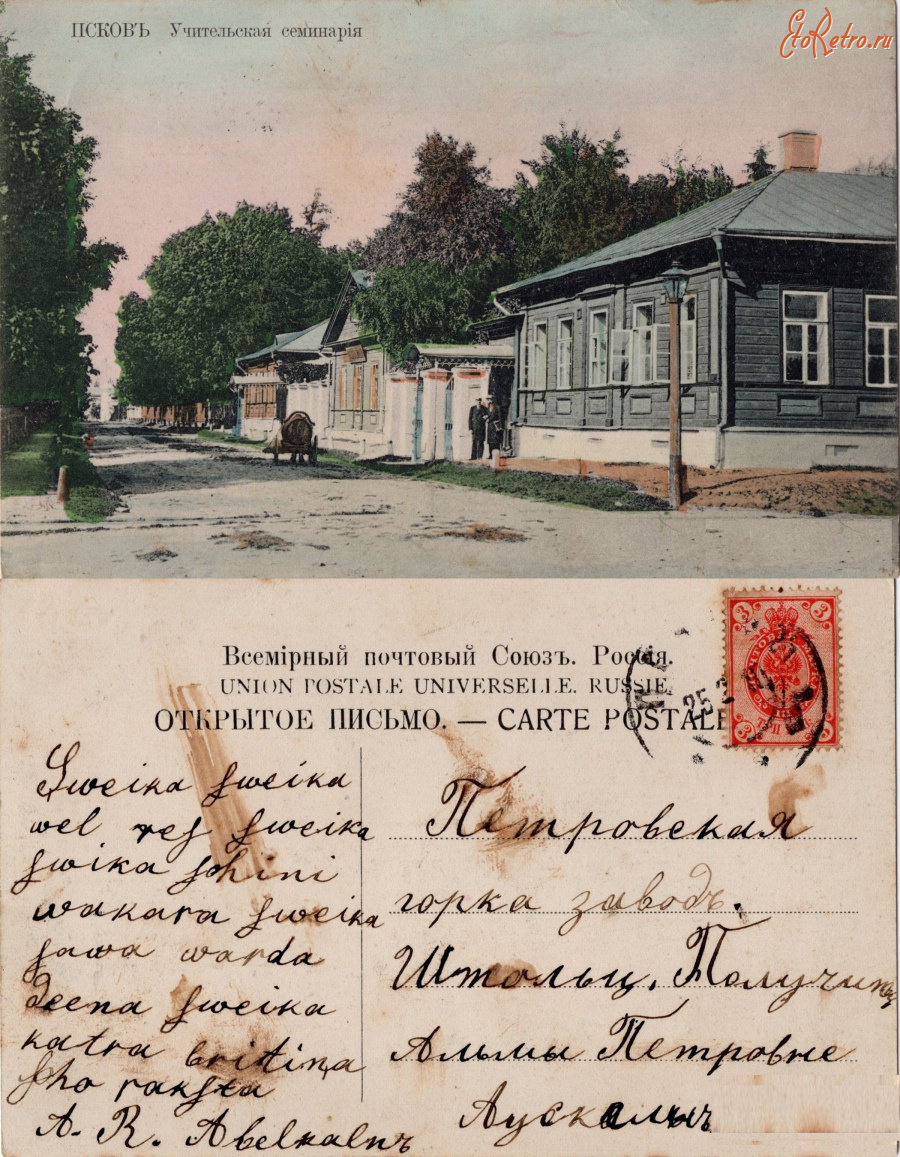 ПСКОВЪ Учительская семинарія
EtoRetro.ru
Всемірный почтовый Союзъ. Россія.
UNION POSTALE UNIVERSELLE. RUSSIE.
ОТКРЫТОЕ ПИСЬМО. — CARTE POSTALE
3 3
25
Sweika sweika
wel res sweika
swika schini
wakara sweika
sawa warda
deena sweika
katra britina
sho raksta
A. R. Abelkaln
Петровская
горка заводъ.
Штольц. Получить
Альмы Петровне